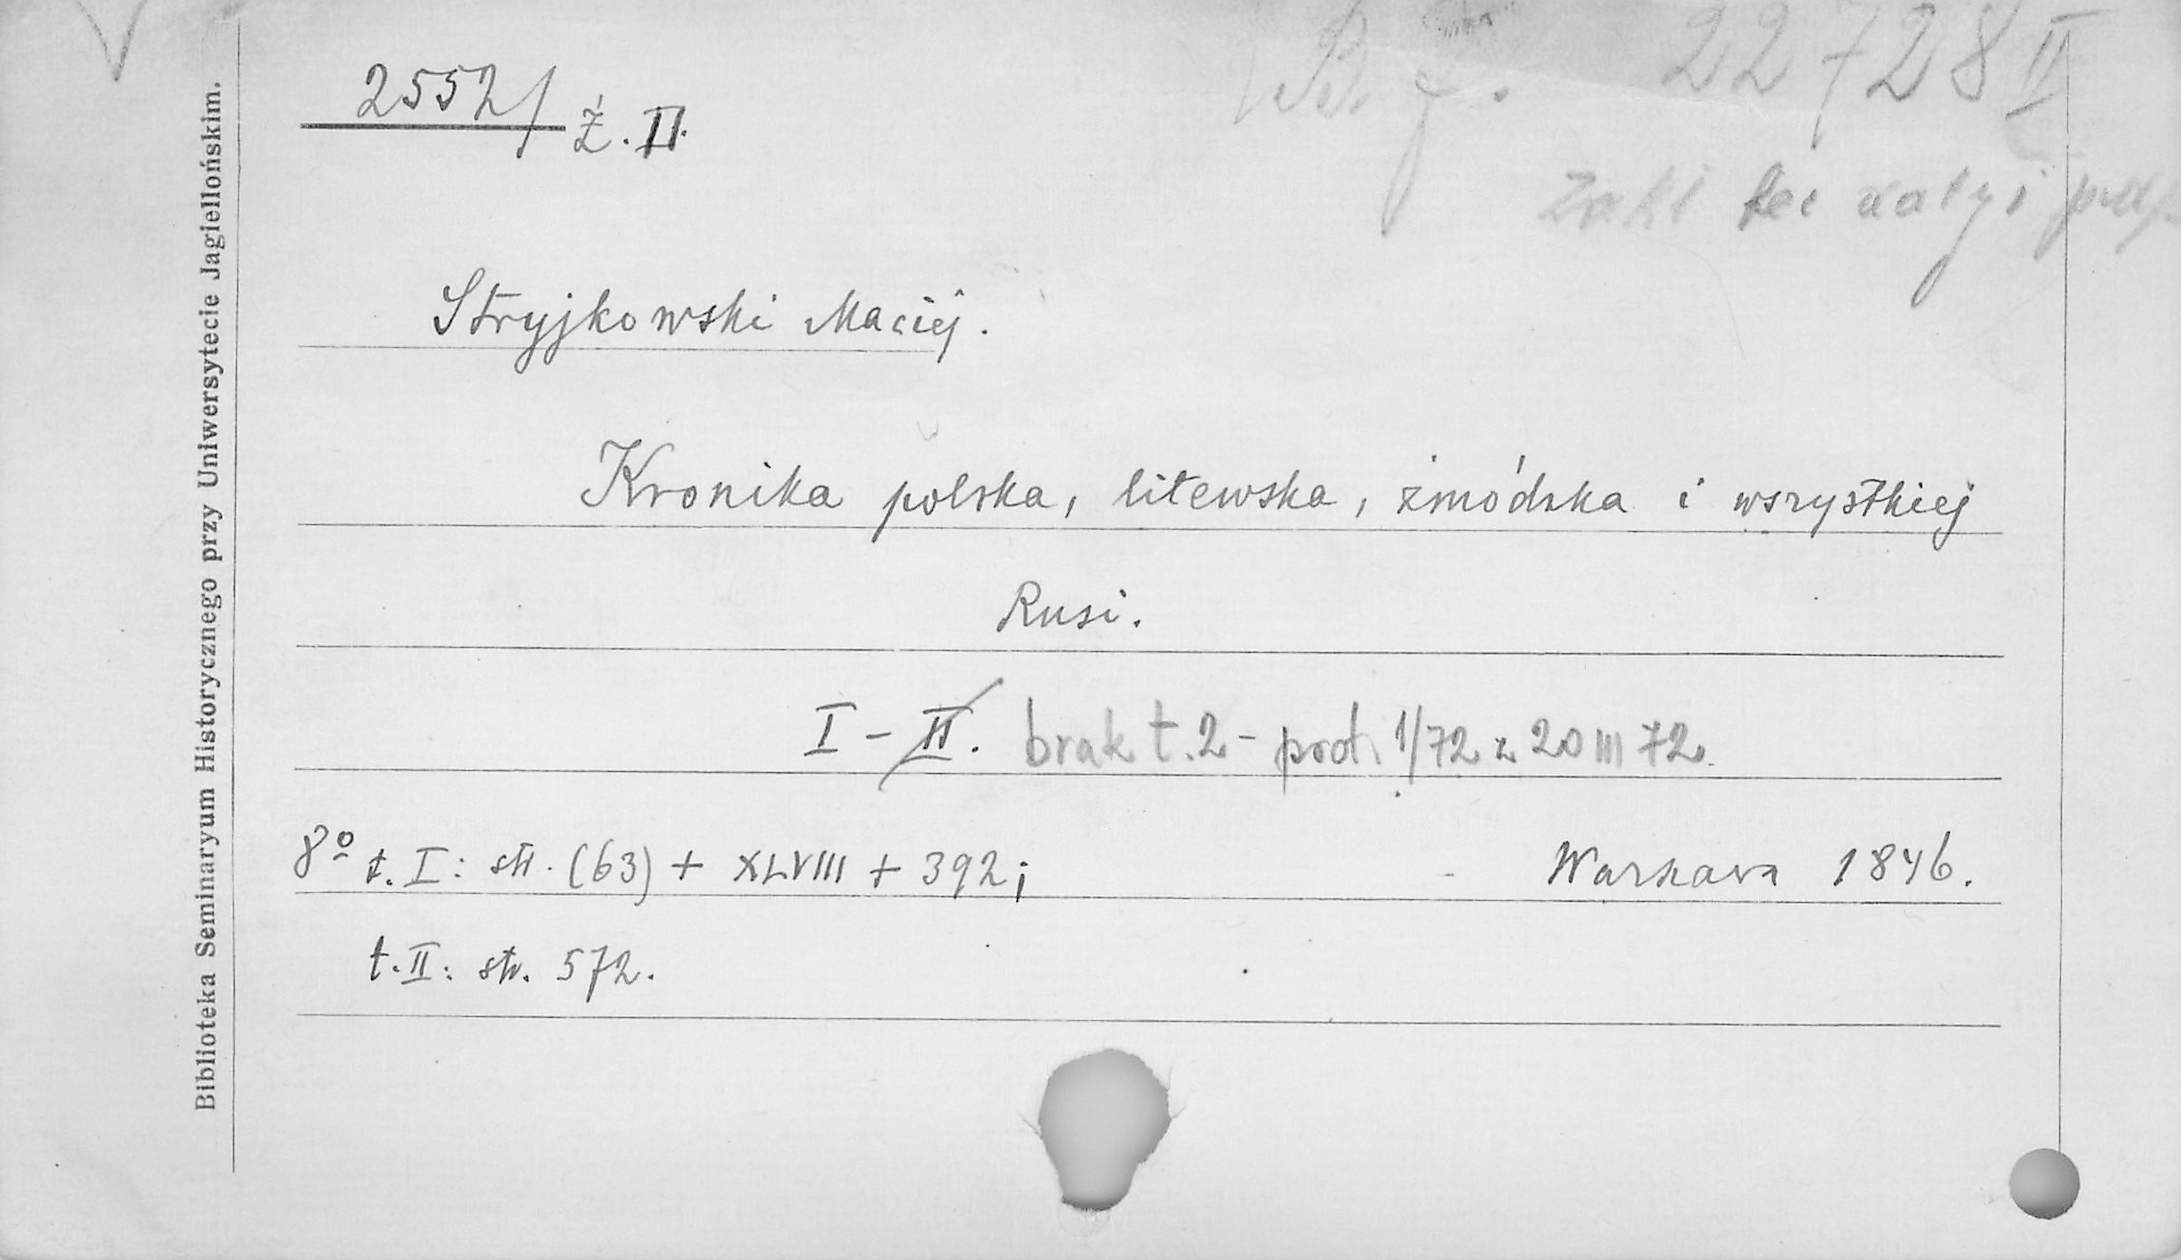 B. J. 22728 II
2552/ Ż. II.
Stryjkowski Maciej.
Kronika polska, litewska, żmódzka i wszystkiej
Rusi.
I - II. brak t. 2 - prot. 1/72 z 20 III 72.
8º t. I: str. (63) + XLVIII + 392;
Warszawa 1846.
t. II: str. 572.
Biblioteka Seminaryum Historycznego przy Uniwersytecie Jagiellońskim.